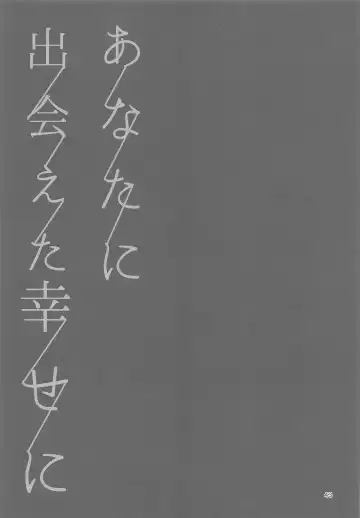 あなたに
出会えた幸せに